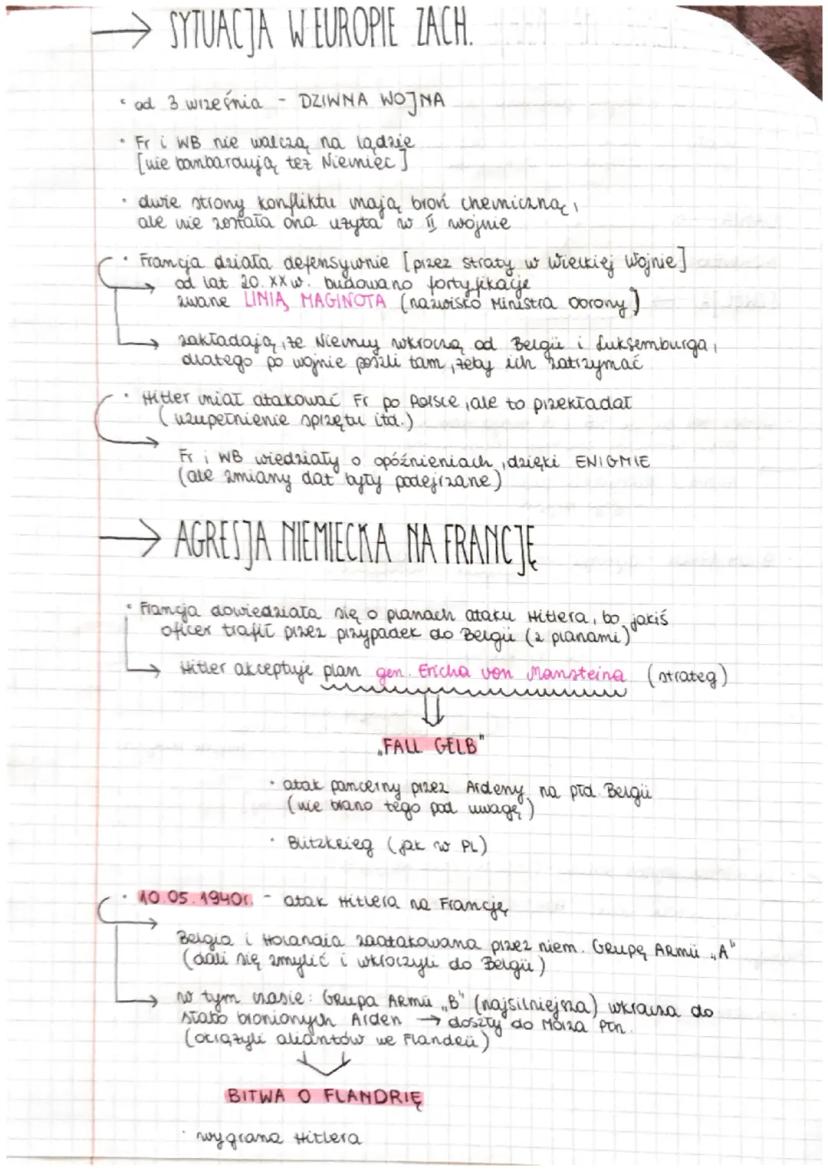 → SYTUACJA W EUROPIE ZACH.
• od 3 września - DZIWNA WOJNA
• Fr i WB nie walczą na lądzie
[nie bombardują też Niemiec]
• dwie strony konfliktu mają broń chemiczną,
ale nie została ona użyta w II wojnie
• Francja działa defensywnie [przez straty w Wielkiej Wojnie]
→ od lat 20. XX w. budowano fortyfikacje
zwane LINIĄ MAGINOTA (nazwisko Ministra Obrony)
→ zakładają, że Niemcy wkroczą od Belgii i Luksemburga,
dlatego po wojnie poszli tam, żeby ich zatrzymać
• Hitler miał atakować Fr po Polsce, ale to przekładał
(uzupełnienie sprzętu itd.)
→ Fr i WB wiedziały o opóźnieniach, dzięki ENIGMIE
(ale zmiany dat były podejrzane)
→ AGRESJA NIEMIECKA NA FRANCJĘ
• Francja dowiedziała się o planach ataku Hitlera, bo jakiś
oficer trafił przez przypadek do Belgii (z planami)
→ Hitler akceptuje plan gen. Ericha von Mansteina (strateg)
"FALL GELB"
• atak pancerny przez Ardeny na płd. Belgii
(nie brano tego pod uwagę)
• Blitzkrieg (jak w PL)
• 10.05.1940r. - atak Hitlera na Francję
→ Belgia i Holandia zaatakowana przez niem. Grupę Armii „A"
(dali się zmylić i wkroczyli do Belgii)
→ w tym czasie: Grupa Armii „B" (najsilniejsza) wkracza do
słabo bronionych Arden → doszły do Morza Płn.
(okrążyli aliantów we Flandrii)
BITWA O FLANDRIĘ
• wygrana Hitlera